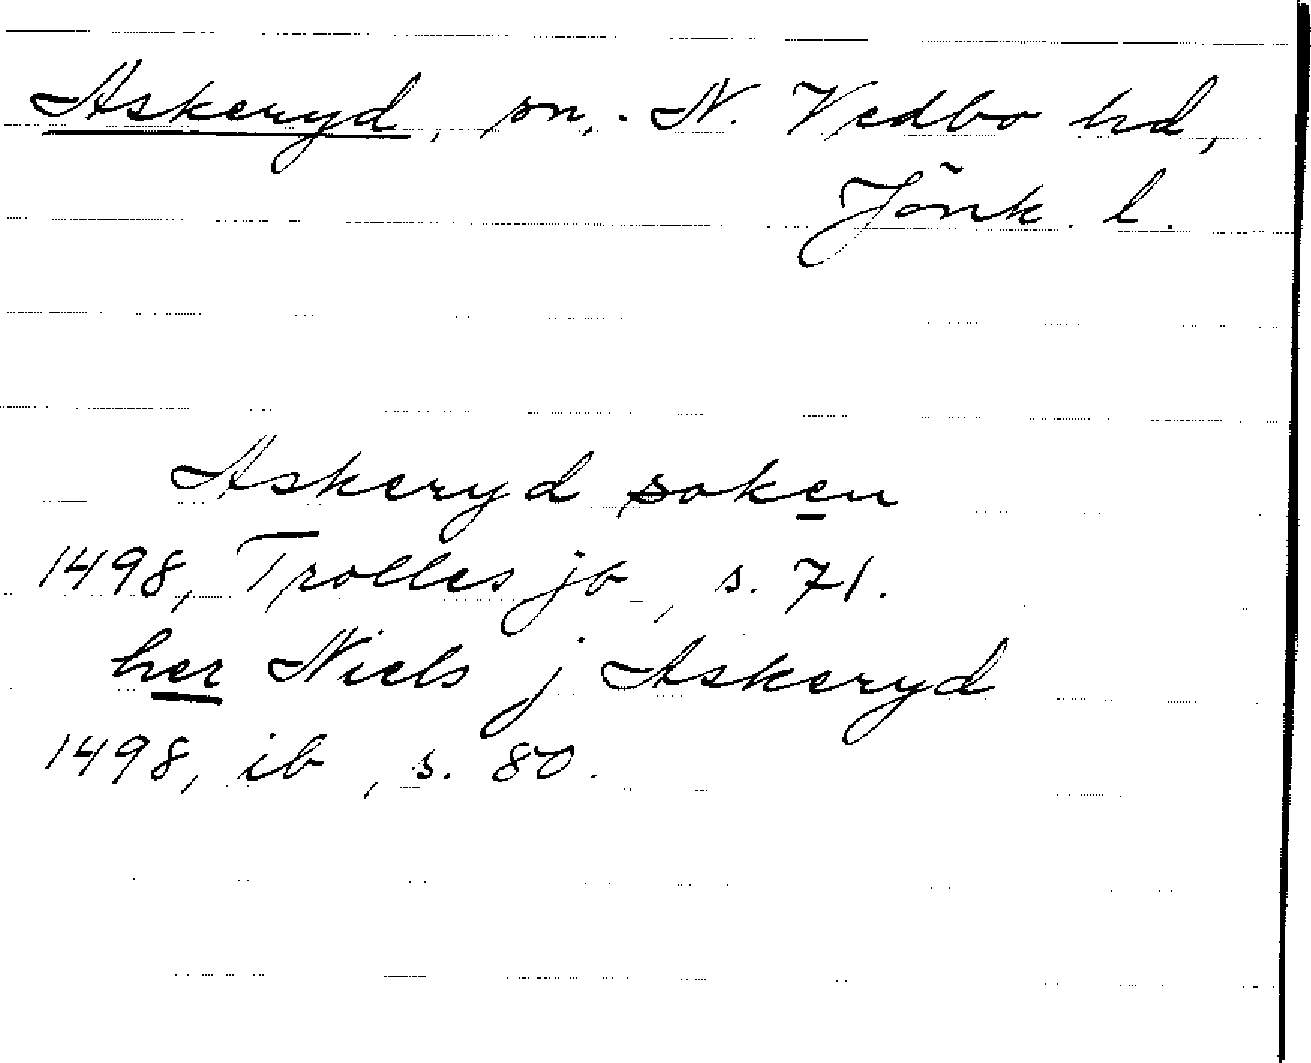 Askeryd, sn, N. Vedbo hd,
Jönk. l.
Askeryd soken
1498, Trolles jb, s. 71.
her Niels j Askeryd
1498, ib, s. 80.